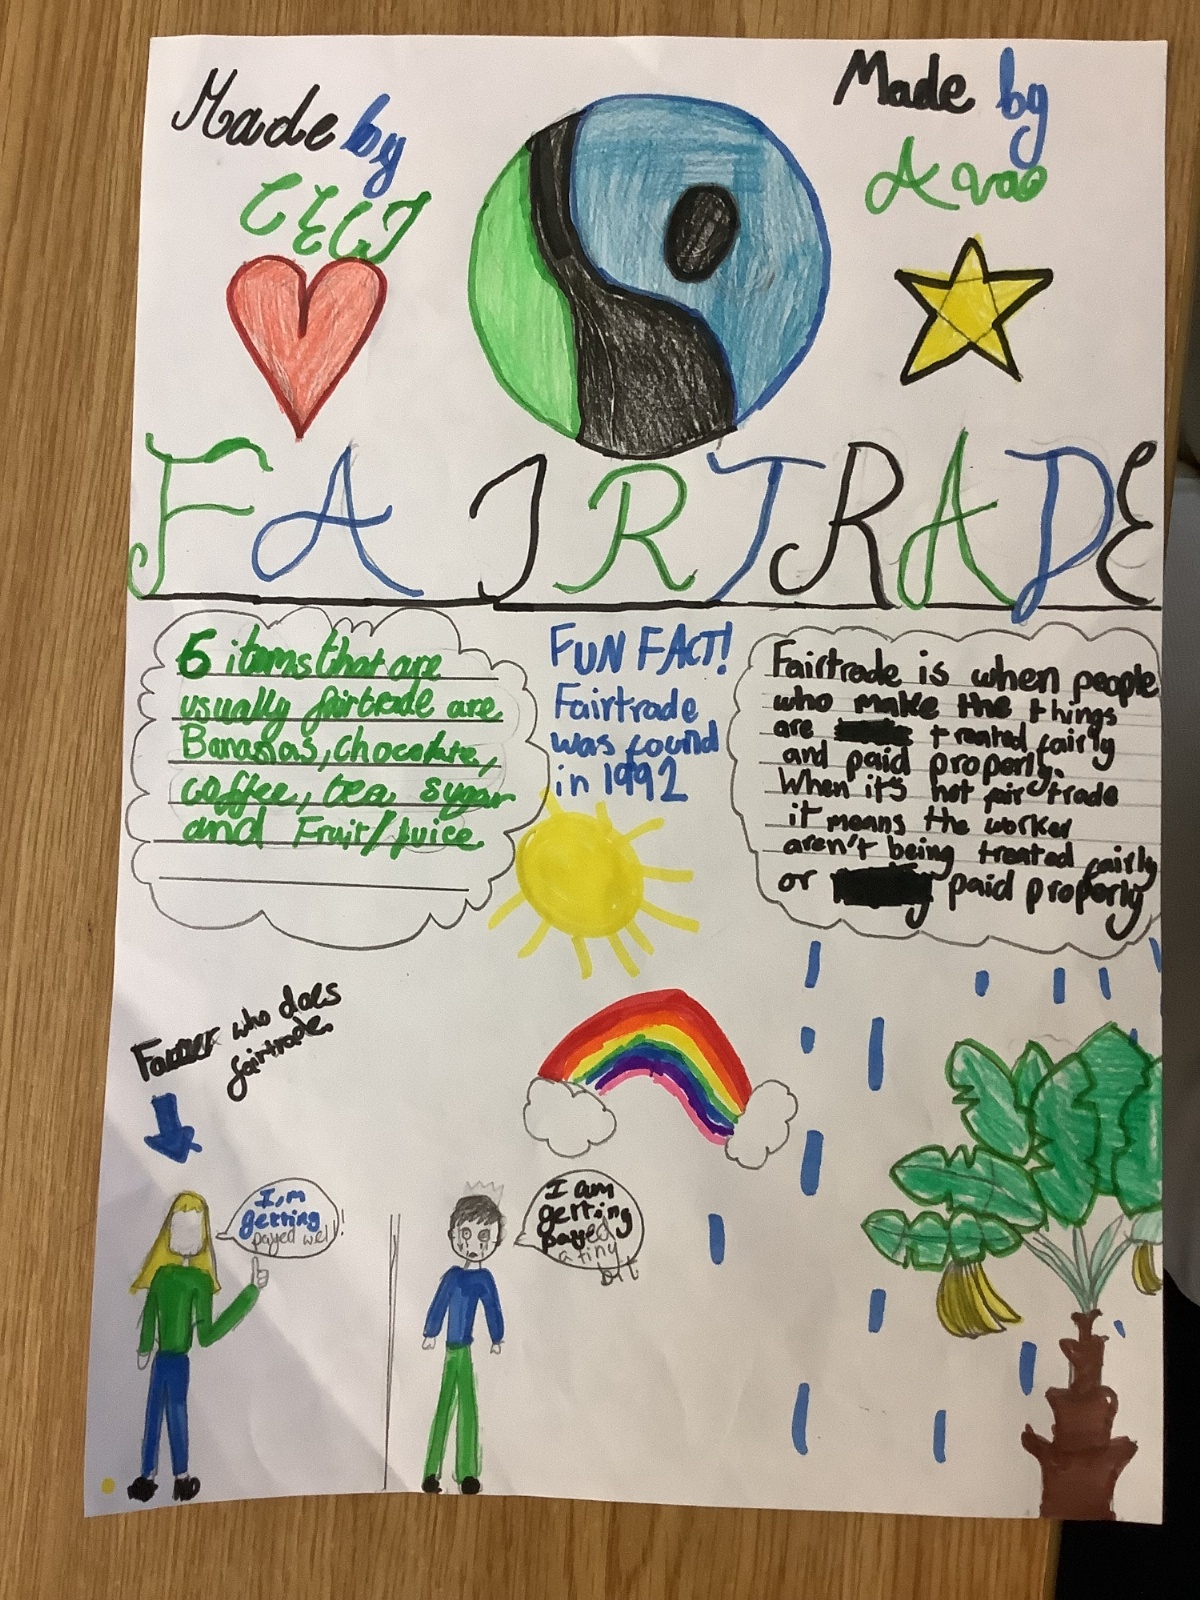 Made by
CECI
Made by
Ava
FAIRTRADE
6 items that are
usually fairtrade are
Bananas, chocolate,
coffee, tea, sugar
and Fruit/juice
FUN FACT!
Fairtrade
was found
in 1992
Fairtrade is when people
who make the things
are treated fairly
and paid properly.
When it's not fair trade
it means the worker
aren't being treated fairly
or paid properly
Farmer who does
fairtrade.
I,m
getting
payed well!
I am
getting
payed
a tiny
bit